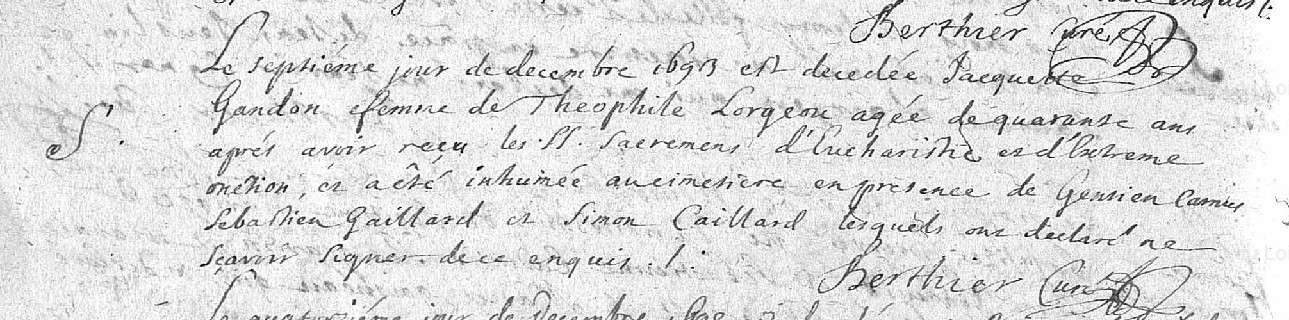 enquis /.
Berthier Curé
Le septiéme jour de decembre 1693 est decedée Jacquette
Gandon femme de Theophile Lorgeou agée de quarante ans
S.
aprés avoir reçu les SS. sacremens d'Eucharistie et d'Extreme
onction, et a été inhumée au cimetiere en presence de Gentien Camus
Sebastien Gaillard et Simon Caillard lesquels ont declaré ne
sçavoir signer de ce enquis. /.
Berthier Curé
Le quatorziéme jour de Decembre